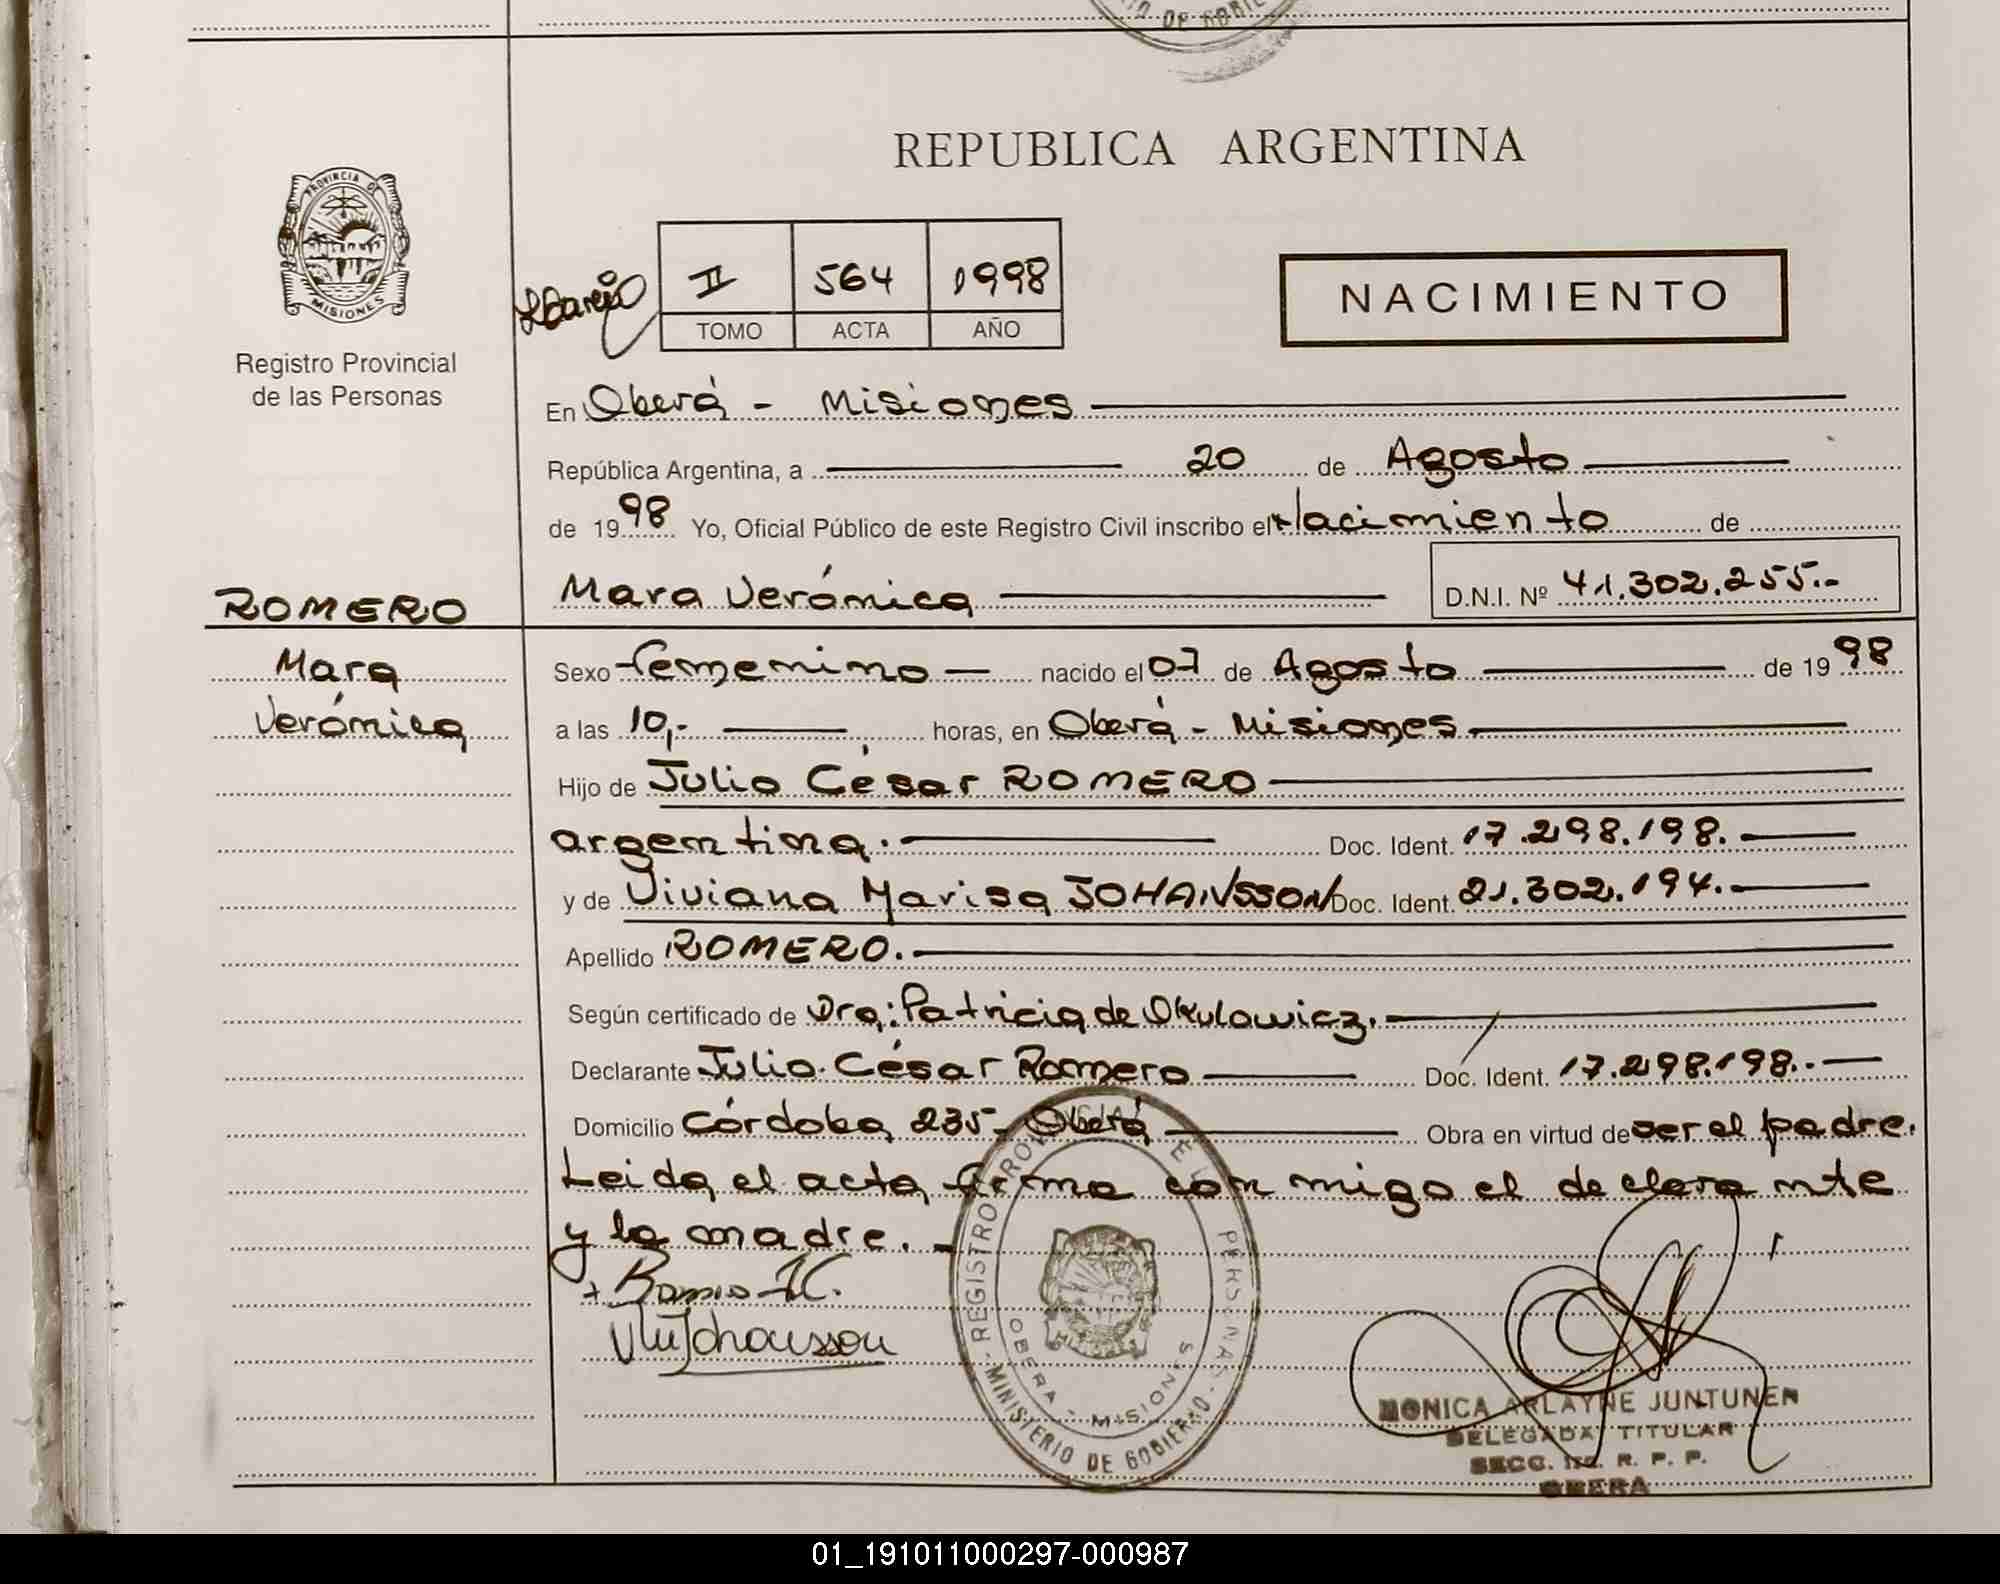 REPUBLICA ARGENTINA
PROVINCIA DE
MISIONES
Registro Provincial
de las Personas
II 564 1998
TOMO ACTA AÑO
NACIMIENTO
En Oberá - Misiones
República Argentina, a 20 de Agosto
de 1998 Yo, Oficial Público de este Registro Civil inscribo el Nacimiento de
ROMERO
Mara
Verónica
Mara Verónica D.N.I. Nº 41.302.255.-
Sexo femenino - nacido el 07 de Agosto de 1998
a las 10,- horas, en Oberá - Misiones
Hijo de Julio César ROMERO
argentina. Doc. Ident. 17.298.198.
y de Viviana Marisa JOHANSSON Doc. Ident. 21.302.194.
Apellido ROMERO.
Según certificado de Dra: Patricia de Okulowicz.
Declarante Julio César Romero Doc. Ident. 17.298.198.
Domicilio Córdoba 235- Oberá Obra en virtud de ser el padre.
Leida el acta, firma con migo el declarante
y la madre. -
REGISTRO PROVINCIAL DE LAS PERSONAS - MINISTERIO DE GOBIERNO
OBERA - MISIONES
MONICA ARLAYNE JUNTUNEN
DELEGADA TITULAR
SECC. R. P. P.
OBERA
01_191011000297-000987